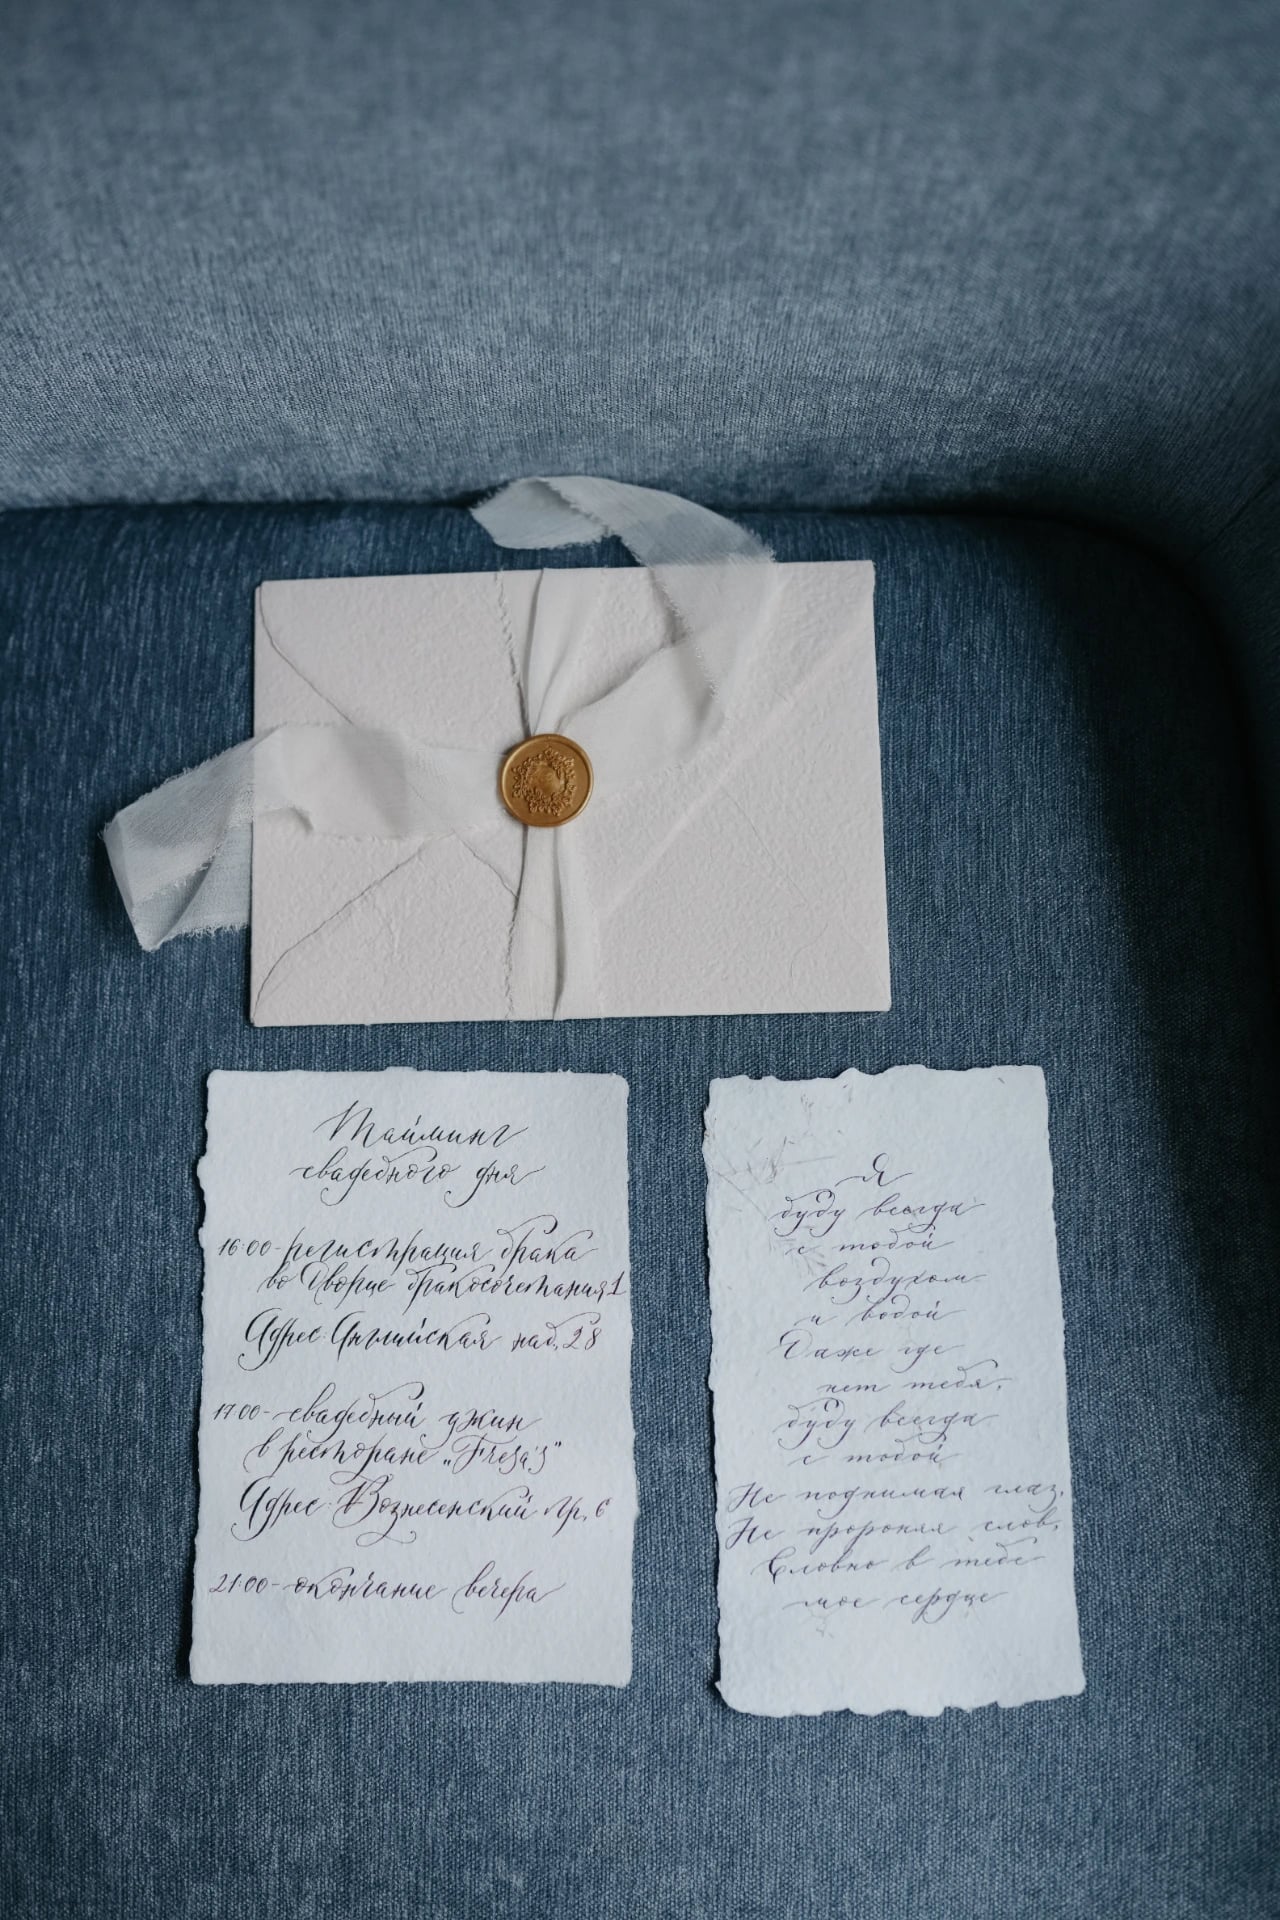 Тайминг
свадебного дня
16:00-регистрация брака
во Дворце бракосочетания 1
Адрес: Английская наб, 28
17:00-свадебный ужин
в ресторане „Freja's"
Адрес: Вознесенский пр, 6
21:00-окончание вечера
Я
буду всегда
с тобой
воздухом
и водой
Даже где
нет тебя,
буду всегда
с тобой
Не поднимая глаз,
Не пророня слов,
Словно в тебе
мое сердце